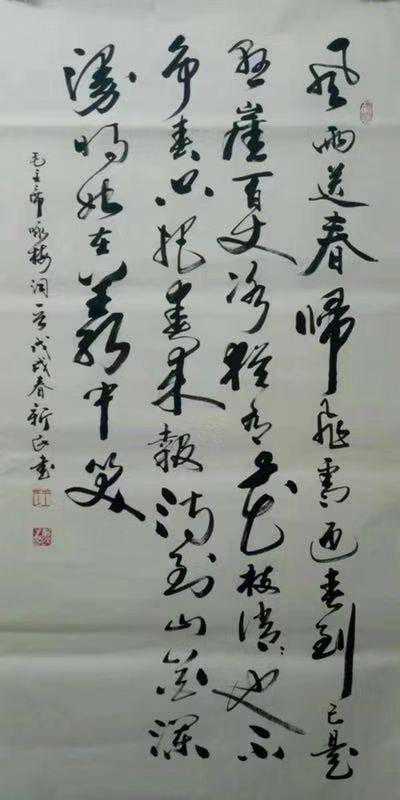 風雨送春歸飛雪迎春到已是
懸崖百丈冰猶有花枝俏〻也不
争春只把春来報待到山花爛
漫時她在叢中笑
毛主席咏梅词一首戊戌春新民書